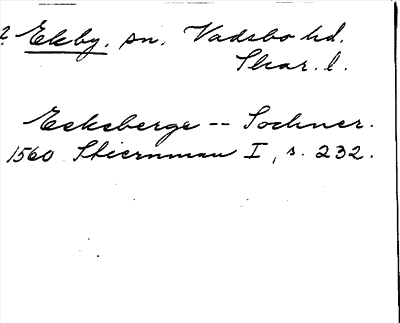 2. Ekby, sn. Vadsbo hd.
Skar. l.
Eekeberge -- Sochner.
1560 Stiernman I, s. 232.